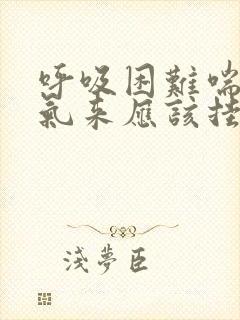 呼吸困難喘
氣來應該挂
淺夢臣